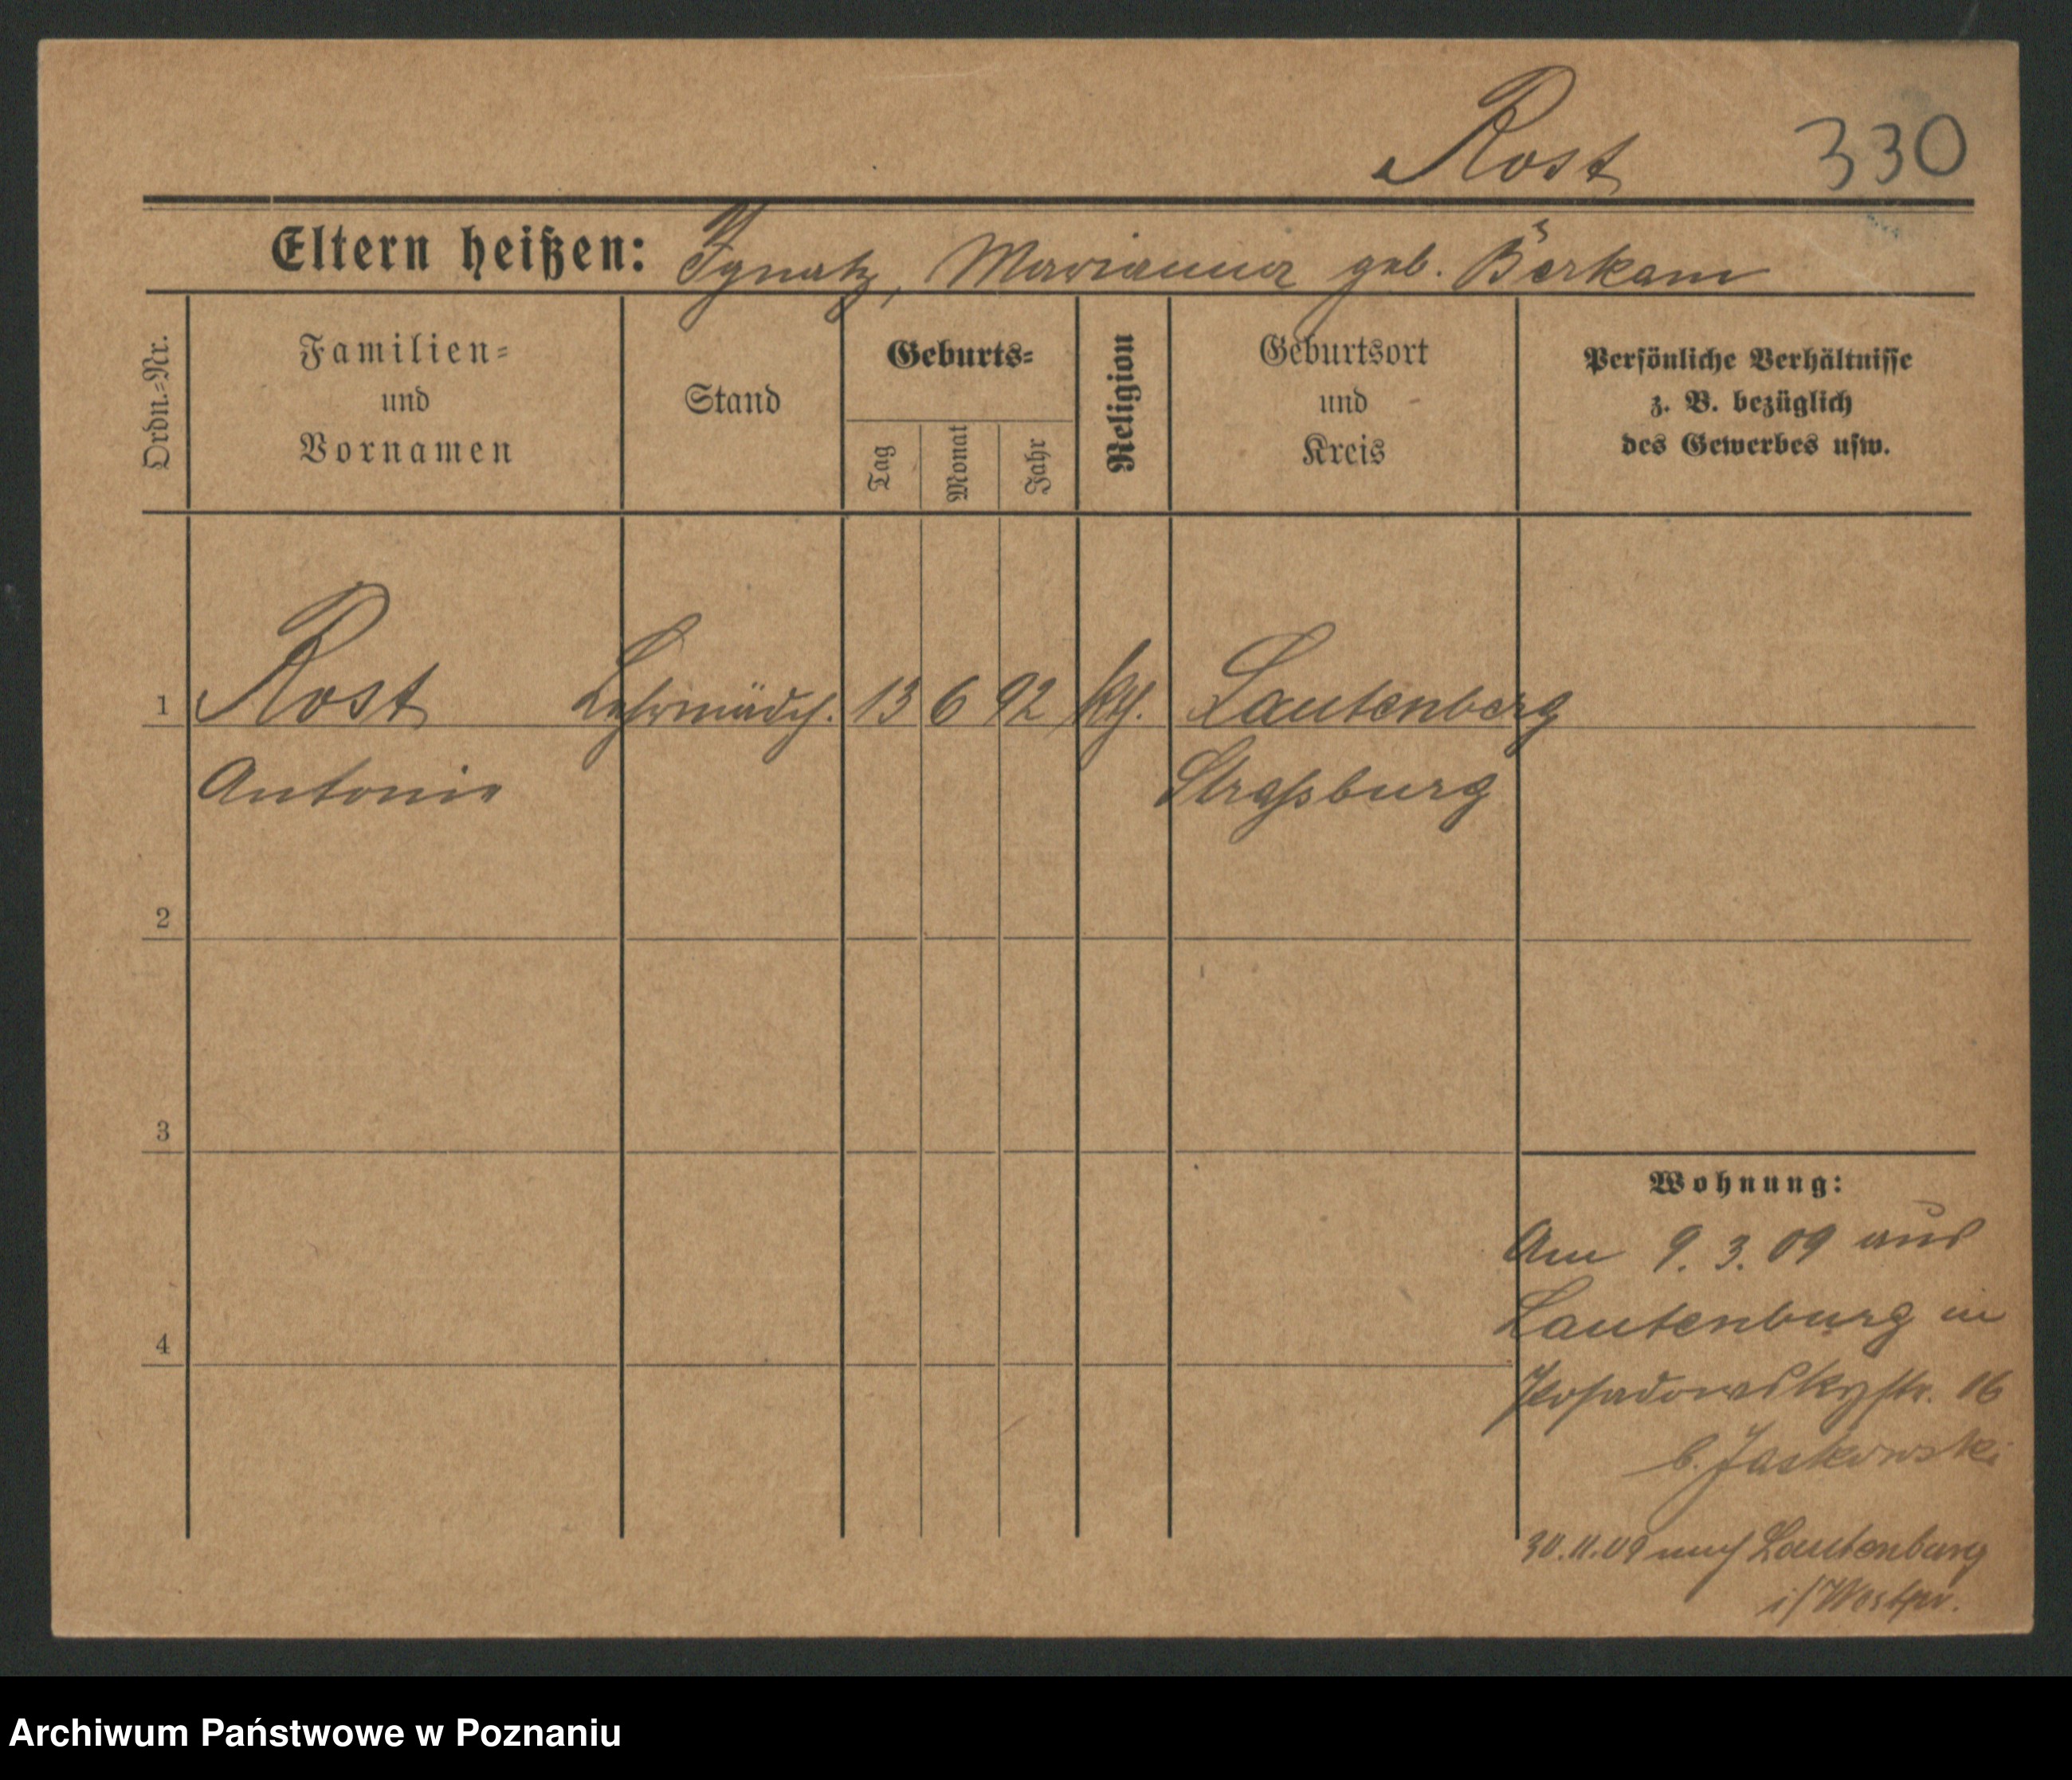 Rost 330
Eltern heißen: Ignatz, Marianna geb. Berkam
Ordn.=Nr.
Familien=
und
Vornamen
Stand
Geburts=
Tag
Monat
Jahr
Religion
Geburtsort
und
Kreis
Persönliche Verhältnisse
z. B. bezüglich
des Gewerbes usw.
1 Rost Lehrmädch. 13 6 92 kth. Lautenberg
Antonie Straßburg
2
3
Wohnung:
Am 9. 3. 09 aus
Lautenburg in
4
Posadowskystr. 16
b. Jaskowski
30.11.09 nach Lautenburg
i/Westpr.
Archiwum Państwowe w Poznaniu